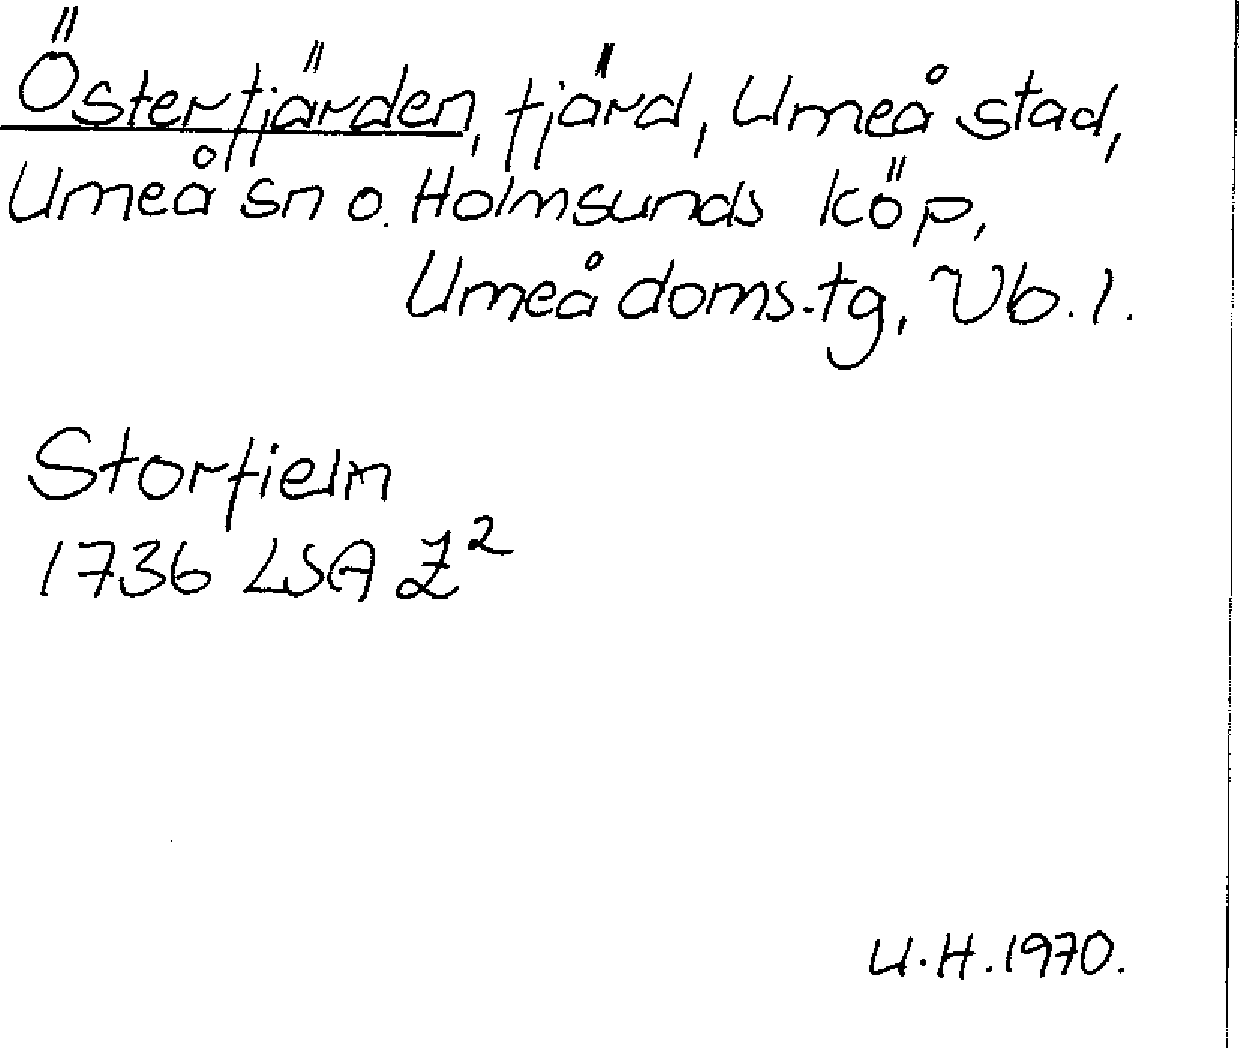 Österfjärden, fjärd, Umeå stad,
Umeå sn o. Holmsunds köp,
Umeå doms.tg, Vb.l.
Storfieln
1736 LSA Z²
U.H.1970.